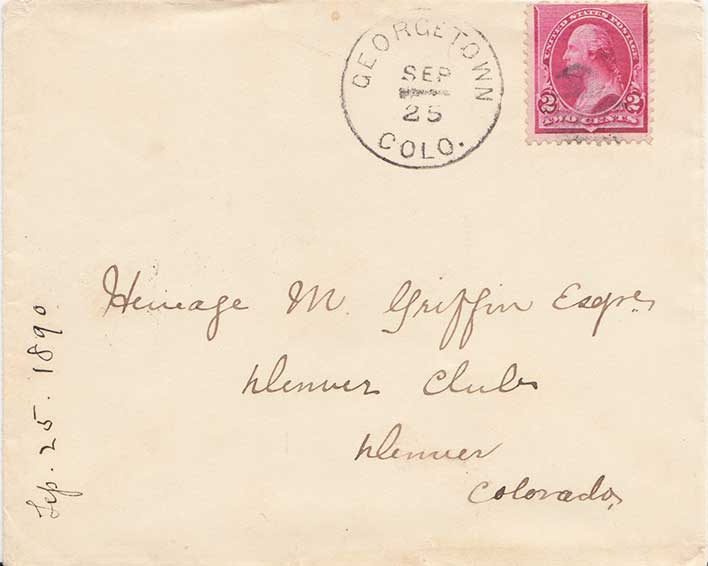 GEORGETOWN
SEP
25
COLO.
UNITED STATES POSTAGE
2 2
TWO CENTS
Heneage M. Griffin Esqre
Denver Club
Denver
Colorado,
Sep. 25. 1890.